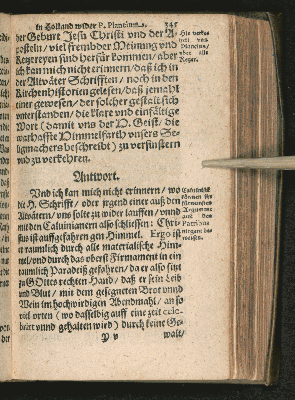 in Holland wider P. Plancium. 345
der Geburt Jesu Christi vnd der A-
posteln / viel frembder Meinung vnd
Ketzereyen sind herfür kommen / aber
ich kan mich nicht erinnern / daß ich in
der Altväter Schrifften / noch in den
Kirchenhistorien gelesen / daß jemahl
einer gewesen / der solcher gestalt sich
vnterstanden / die klare vnd einfältige
Wort (damit vns der H. Geist / die
warhaffte Himmelfarth vnsers Se-
ligmachers beschreibt) zu verfinstern
vnd zu verkehren.
Antwort.
Vnd ich kan mich nicht erinnern / wo
die H. Schrifft / oder jrgend einer auß den
Altvätern / vns solte zu wider lauffen / vnnd
mit den Calvinianern also schliessen: Chri-
stus ist auffgefahren gen Himmel. Ergo ist
er raumlich durch alle materialische Him-
mel / vnd durch das oberst Firmament in ein
raumlich Paradeiß gefahren / da er also sitzt
zu GOttes rechten Hand / daß er sein Leib
vnd Blut / mit dem gesegneten Brot vnnd
Wein im hochwirdigen Abendmahl / an so
viel orten (wo dasselbig auff eine zeit cele-
briret vnnd gehalten wird) durch keine Ge-
Y v walt /
Plancius /
aller
Ketzer.
Calvinisch
Argument
auß den
Patribus
nirgent be-
weisen.